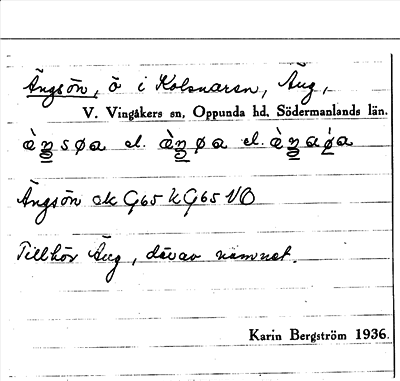 Ängsön, ö i Kolsnaren, Äng,
V. Vingåkers sn, Oppunda hd, Södermanlands län.
el. el.
Ängsön ek G65 k G65 VO
Tillhör Äng, därav namnet.
Karin Bergström 1936.